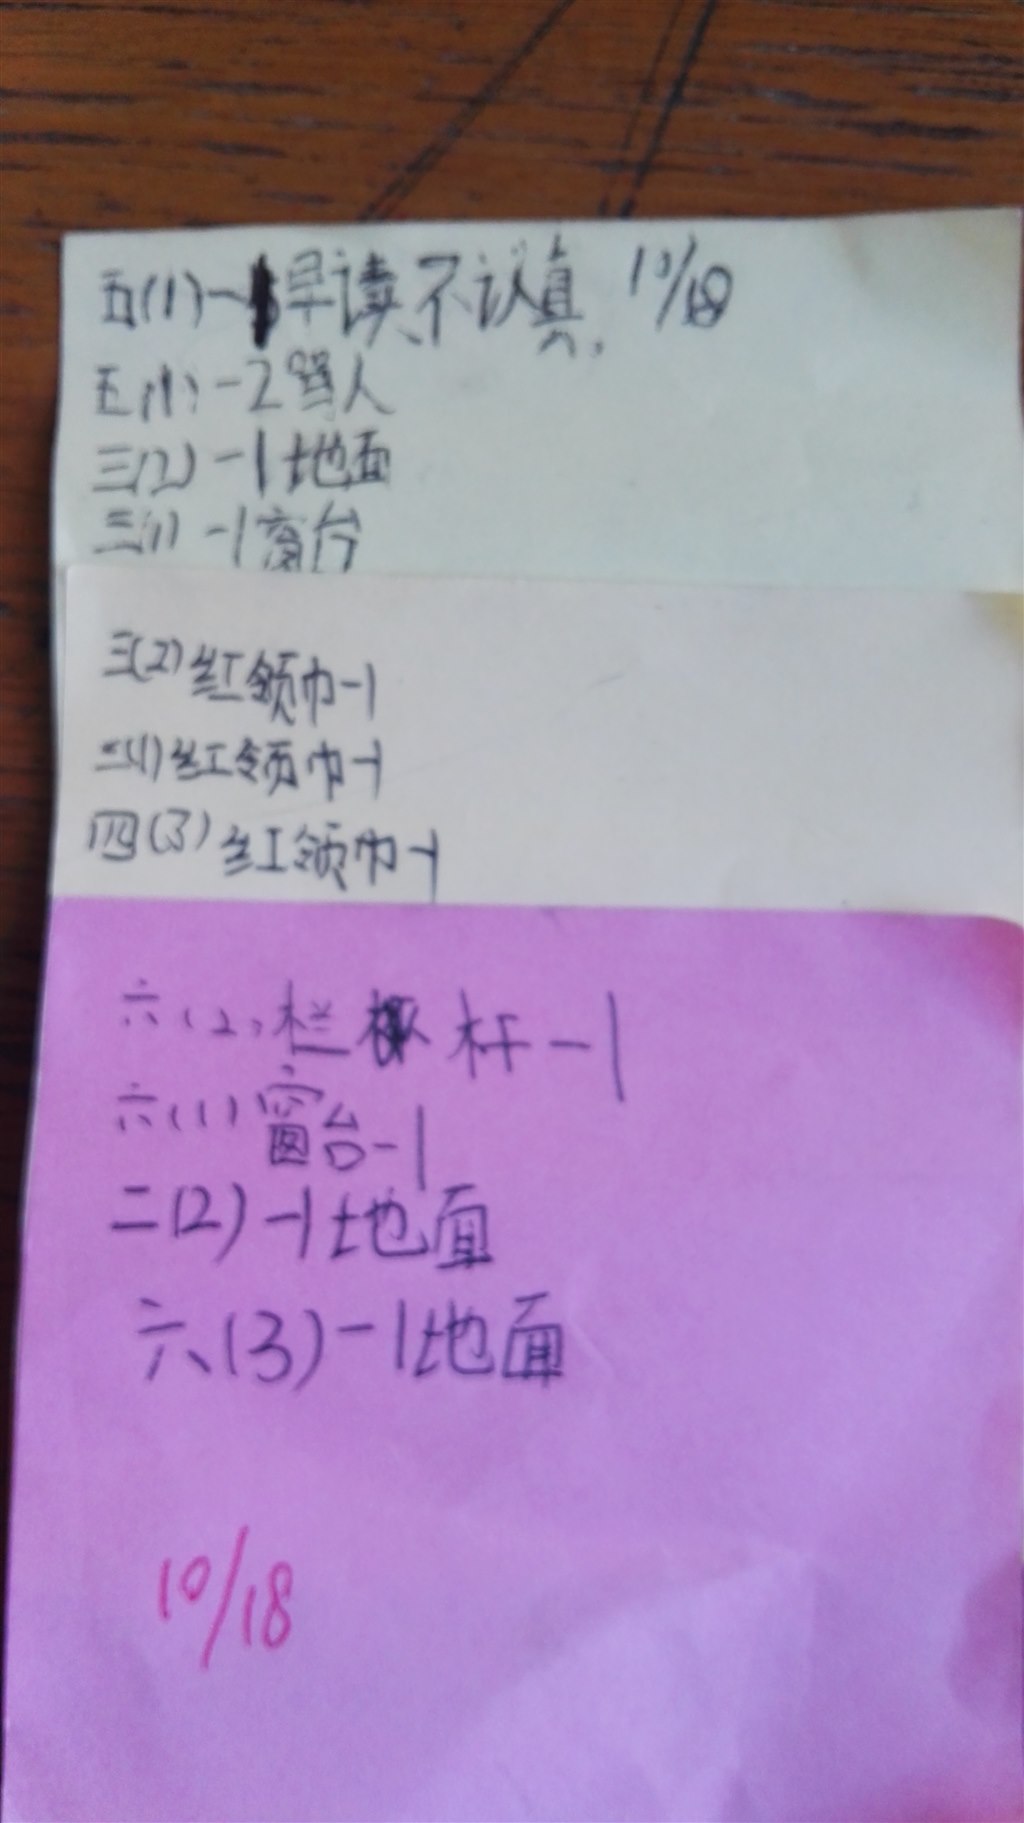 五(1)-1早读不认真, 10/18
五(1)-2骂人
三(2)-1地面
三(1)-1窗台
三(2)红领巾-1
二(1)红领巾-1
四(3)红领巾-1
六(2)栏杆-1
六(1)窗台-1
二(2)-1地面
六(3)-1地面
10/18